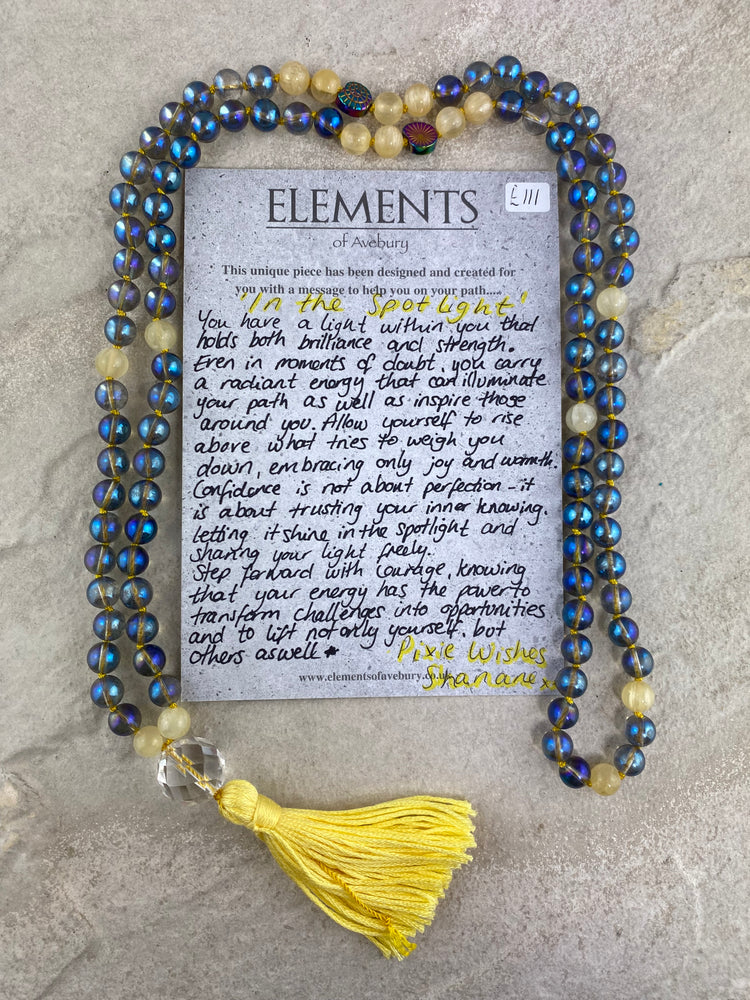 ELEMENTS
£111
of Avebury
This unique piece has been designed and created for
you with a message to help you on your path....
"In the Spotlight"
You have a light within you that
holds both brilliance and strength.
Even in moments of doubt, you carry
a radiant energy that can illuminate
your path as well as inspire those
around you. Allow yourself to rise
above what tries to weigh you
down, embracing only joy and warmth.
Confidence is not about perfection - it
is about trusting your inner knowing.
letting it shine in the spotlight and
sharing your light freely.
Step forward with courage, knowing
that your energy has the power to
transform challenges into opportunities
and to lift not only yourself, but
others aswell
Pixie Wishes
www.elementsofavebury.co.uk
Shanane xx